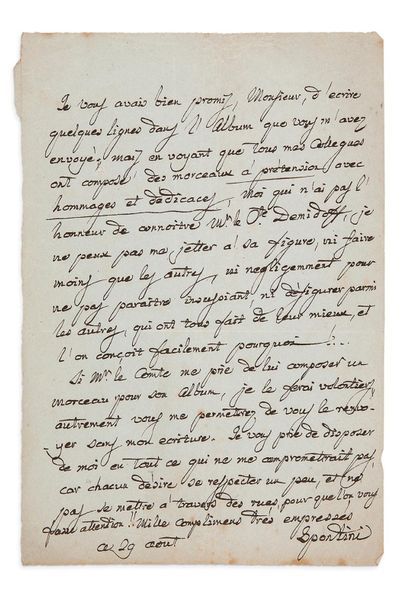 Je vous avais bien promis, Monsieur, d'écrire
quelques lignes dans l'Album que vous m'avez
envoyé; mais en voyant que tous mes Collegues
ont composé des morceaux a prétension avec
hommages et dedicaces, Moi qui n'ai pas l'
honneur de connoitre Mr. le Cte Demidoff, je
ne peux pas me jetter a' sa figure, ni faire
moins que les autres, ni negligemment pour
ne pas paraitre insouciant, ni défigurer parmi
les autres, qui ont tous fait de leur mieux, et
l'on conçoit facilement pourquoi !...
Si Mr. le Comte me prie de lui composer un
morceau pour son album, je le ferai volontiers,
autrement vous me permettrez de vous le renvo-
yer sans mon ecriture. Je vous prie de disposer
de moi en tout ce qui ne me compromettrait pas
car chacun désire se respecter un peu, et ne
pas se mettre a' travers des rues, pour que l'on vous
fasse attention !! Mille complimens trés empressés
ce 29 aout Spontini